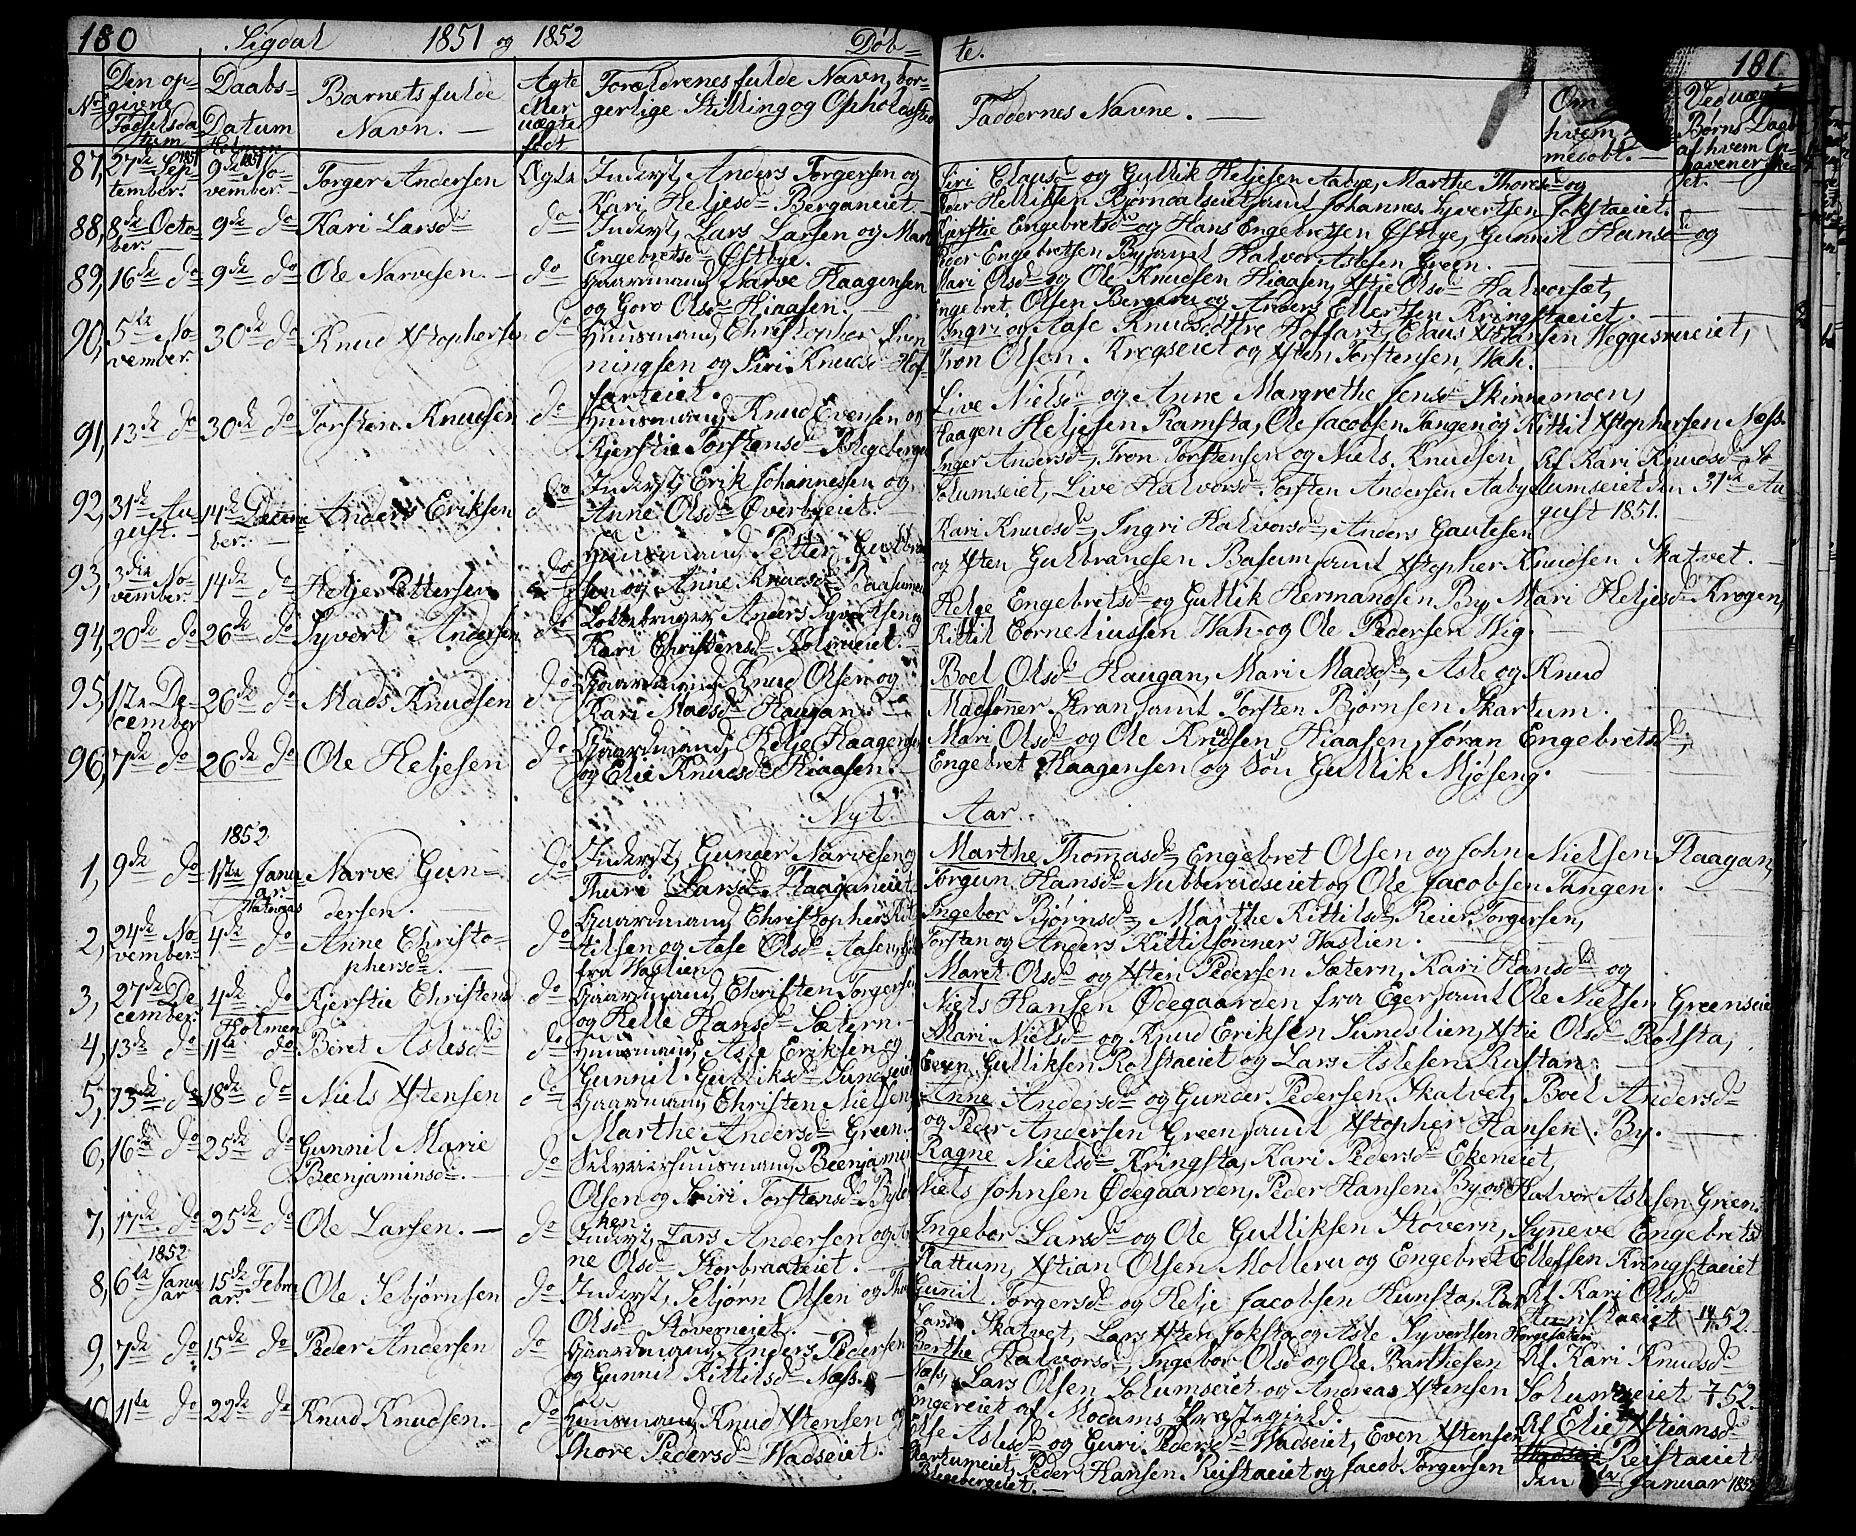 180 Sigdal 1851 og 1852 Døb= te. 181
No Den op= givne Fødselsda= tum
Daabs= Datum
Barnets fulde Navn. —
Ægte eller uægte født
Forældrenes fulde Navn, bor= gerlige Stilling og Opholdssted
Faddernes Navne. —
Om hvem medobt. —
Ved uægt Børns Daab af hvem
87, 27de Sep= tember. 1851 9de No= vember. 1851 Torger Andersen Ægte Inderst, Anders Torgersen og
Kari Heljesd. Berganeiet
Siri Clausd. og Gullik Heljesen Aabye, Marthe Thoresd. og
Peer Helliksen Bjørndalseiet samt Johannes Syvertsen Jokstaeiet.
88, 8de Octo= ber. 9de do Kari Larsd. do Inderst, Lars Larsen og Mari
Engebretsd. Østbye.
Kjerstie Engebretsd. og Hans Engebretsen Østbye, Gunnil Hansd. og
Peer Engebretsen By samt Halvor Aslesen Green.
89, 16de do 9de do Ole Narvesen. — do Gaardmand, Narve Haagensen
og Goro Olsd. Hiaasen.
Mari Olsd. og Ole Knudsen Hiaasen, Xtie Olsd. Halvorsæt,
Engebret Olsen Bergan og Anders Ellertsen Kringstaeiet.
90, 5te No= vember. 30de do Knud Xtophersen do Huusmand, Christopher
ningsen og Siri Knudsd. Hof=
farteiet.
Ingri og Aase Knudsdøttre Hoffart, Claus Xtiansen Heggesrueiet,
Tron Olsen Krogseiet og Xten Torstensen Hah.
91, 13de do 30de do Torsten Knudsen do Huusmand, Knud Evensen og
Kjerstie Torstensd. Blegeberget
Live Nielsd. og Anne Margrethe Jensd. Skinnemoen,
Haagen Heljesen Ramsta, Ole Jacobsen Tangen og Kittil Xtophersen Næss.
92, 31te Au= gust. 14de Decem= ber. Anders Eriksen do Inderst, Erik Johannesen og
Anne Olsd. Øverbyeiet.
Inger Andersd., Tron Torstensen og Niels Knudsen
Solumseiet, Live Halvorsd. Torsten Andersen Aabye
Af Kari Knudsd. So=
lumseiet den 31te Au=
gust 1851.
93, 3die No= vember. 14de do Helje Pettersen do Huusmand, Petter Gulbrand
sen og Anne Knudsd.
Kari Knudsd., Ingri Halvorsd., Anders Gautesen
og Xten Gulbrandsen Basum samt Xtopher Knudsen Skatvet.
94, 20de do 26de do Syvert Andersen do Anders Syvertsen og
Kari Christensd. Holmeiet.
Helge Engebretsd. og Gullik Hermandsen By, Mari Heljesd. Krogen,
Kittil Corneliussen Hah og Ole Pedersen Wig.
95, 1ste De= cember 26de do Mads Knudsen do Gaardmand Knud Olsen og
Kari Madsd. Haugan.
Boel Olsd. Haugan, Mari Madsd., Asle og Knud
Madsønner Stran samt Torsten Bjørnsen Skartum.
96, 7de do 26de do Ole Heljesen do Gaardmand, Helje Haagensen
og Elie Knudsd. Hiaasen.
Mari Olsd. og Ole Knudsen, Hiaasen, Jøran Engebretsd.,
Engebret Haagensen og Søn Gullik Mjøseng.
Nyt Aar.
1852
1, 9de do 1ste Janu= ar Narve Gun= dersen. do Inderst, Gunder Narvesen og
Thuri Larsd. Haaganeiet.
Marthe Thomasd., Engebret Olsen og John Nielsen Haagan,
Jørgun Hansd. Nubberudseiet og Ole Jacobsen Tangen.
2, 24de No= vember. 4de do Anne Christo= phersd. do Gaardmand Christopher Kit=
tilsen og Aase Olsd. Aasen,
fra Haslien
Ingebor Bjørnsd., Marthe Kittilsd., Reier Torgersen,
Torsten og Anders Kittilsønner Haslien.
3, 27de De= cember. 4de do Kjerstie Christensd. do Gaardmand Christen Torgersen
og Helle Hansd. Sætern.
Maret Olsd. og Xten Pedersen Sætern, Kari Hansd. og
Niels Hansen Ødegaarden fra Eger samt Ole Nielsen Greenseiet
4, 13de do Holmen 11te do Beret Aslesd. do Huusmand, Asle Eriksen og
Gunnil Gulliksd.
Mari Nielsd. og Knud Eriksen Sundslien, Xtie Olsd. Rolsta,
Even Gulliksen Rolstaeiet og Lars Aslesen Rustan.
5, 18de do Niels Xtensen do Gaardmand, Christen Nielsen og
Marthe Andersd. Green.
Anne Andersd. og Gunder Pedersen Skatvet, Boel Andersd.
og Peder Andersen Green samt Xtopher Hansen By.
6, 16de do 25de do Gunnil Marie Beenjaminsd. do Selveierhuusmand Beenjamin
Olsen og Siri Torstensd.
Ragne Nielsd. Kringsta, Kari Pedersd. Ekeneiet,
Niels Johnsen Ødegaarden, Peder Hansen By og Halvor Aslesen Green.
7, 17de do 25de do Ole Larsen. — do Inderst, Lars Andersen og An=
ne Olsd. Storbraateiet.
Ingebor Larsd. og Ole Gulliksen Støvern, Syneve Engebretsd.
Flattum, Xtian Olsen Mølleru og Engebret Ellefsen Kringstaeiet
1852
8, 6te Janu= ar 15de Febru= ar. Ole Sebjørnsen do Inderst, Sebjørn Olsen og
Olsd. Støverneiet.
Gunil Torgersd. og Helje Jacobsen Kunsta,
Skatvet, Lars Xtensen Joksta og Asle Syvertsen
Af Kari Olsd.
Kunstaeiet 52.
9, 7de do 15de do Peder Andersen do Gaardmand, Anders Pedersen
og Gunnil Kittilsd. Næss.
Berthe Halvorsd., Ingebor Olsd. og Ole Barthesen
Næss, Lars Olsen Solumseiet og Andreas Xtensen
Engereiet af Modums Præstegield.
Af Kari Knudsd.
Solumseiet 52.
10, 11te do 22de do Knud Knudsen. do Huusmand Knud Xtensen og
Thore Pedersd. Wadseiet.
Else Aslesd. og Guri Pedersd. Wadseiet, Even Xtensen
Skartumeiet, Peder Hansen Reistaeiet og Jacob Torgersen
Blegebergeiet. —
Af Elie Xtiansd.
Reistaeiet
den Januar 1852.